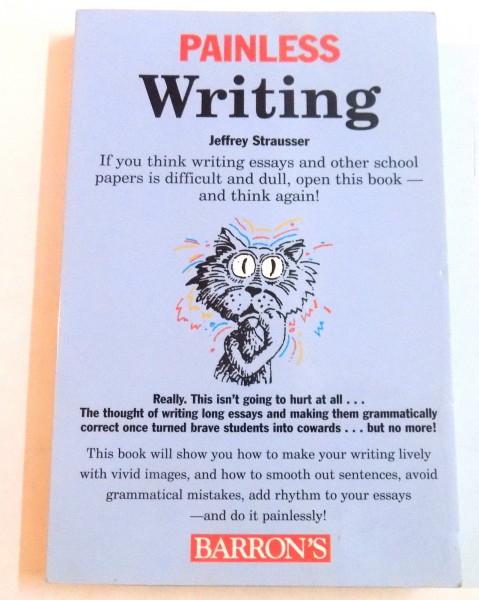 PAINLESS
Writing
Jeffrey Strausser
If you think writing essays and other school
papers is difficult and dull, open this book —
and think again!
Really. This isn't going to hurt at all . . .
The thought of writing long essays and making them grammatically
correct once turned brave students into cowards . . . but no more!
This book will show you how to make your writing lively
with vivid images, and how to smooth out sentences, avoid
grammatical mistakes, add rhythm to your essays
—and do it painlessly!
BARRON'S